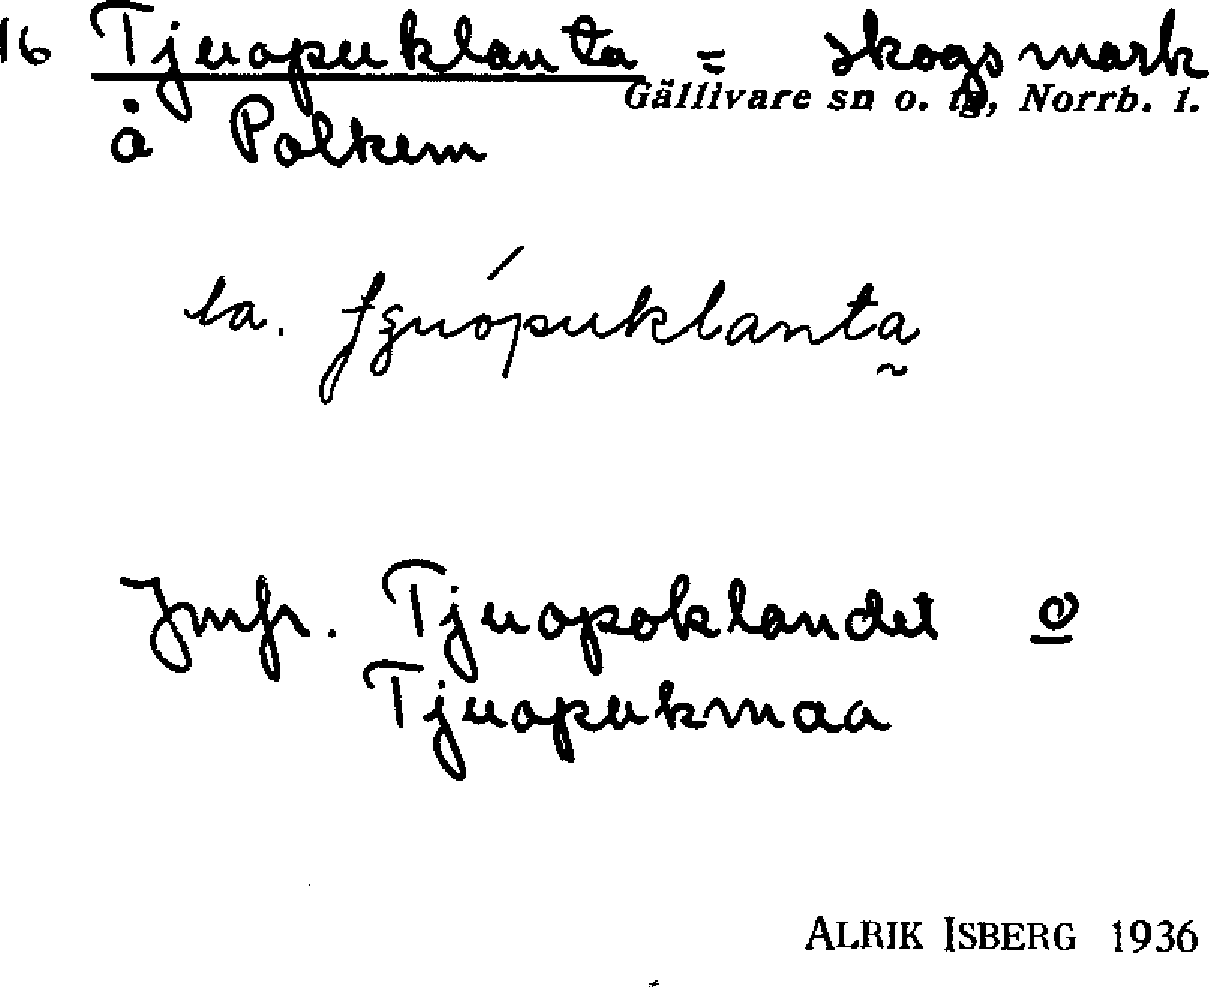 16 Tjuopuklanta = skogsmark
Gällivare sn o. tg, Norrb. l.
å Polkem
la. tʒuópuklanta̰
Jmfr. Tjuopoklandet o
Tjuopukmaa
ALRIK ISBERG 1936